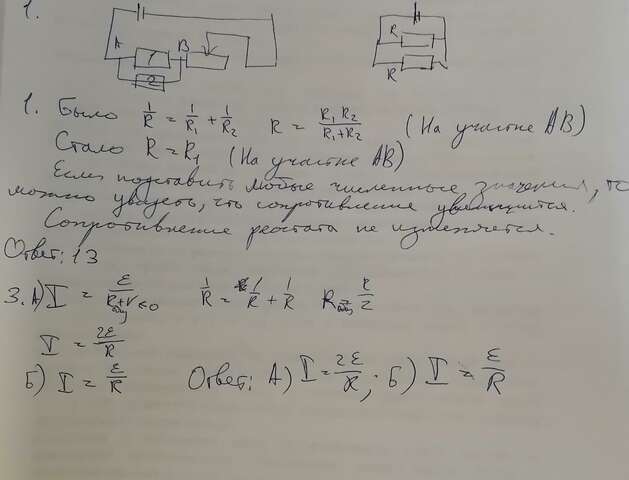 1.
A 1 B
2
R
R
1. Было 1/R = 1/R₁ + 1/R₂ R = R₁R₂/(R₁+R₂) (На участке AB)
Стало R = R₁ (На участке AB)
Если подставить любые численные значения, то
можно увидеть, что сопротивление увеличится.
Сопротивление реостата не изменяется.
Ответ: 13
3. А) I = ε/(Rобщ+r) 1/R = 1/R + 1/R Rобщ = R/2
I = 2ε/R
Б) I = ε/R Ответ: А) I = 2ε/R; Б) I = ε/R